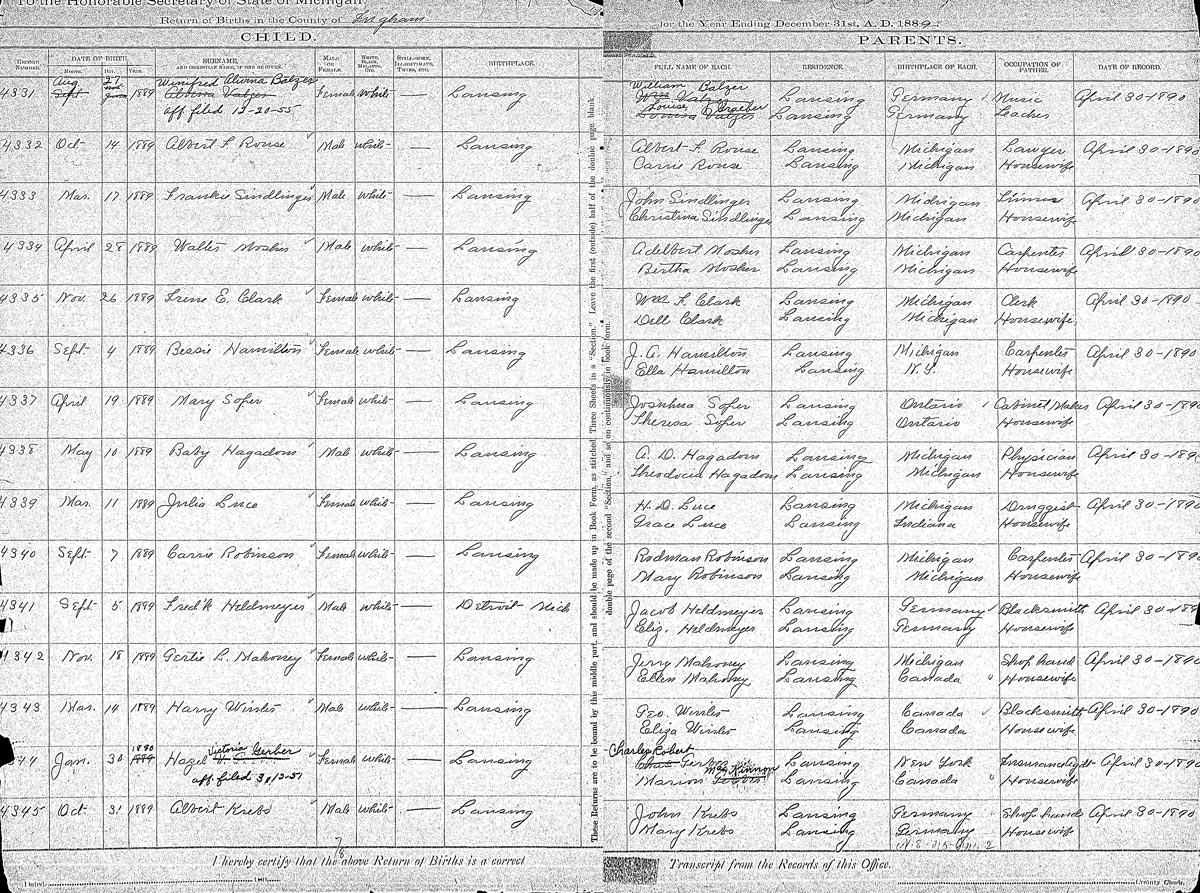 To the Honorable Secretary of State of Michigan,
Return of Births in the County of Ingham for the Year Ending December 31st, A. D. 1889.
CHILD. PARENTS.
RECORD NUMBER. DATE OF BIRTH. MONTH. DAY. YEAR. SURNAME, AND CHRISTIAN NAME, IF ONE BE GIVEN. MALE OR FEMALE. WHITE, BLACK, MULATTO, ETC. STILL-BORN, ILLEGITIMATE, TWINS, ETC. BIRTHPLACE. FULL NAME OF EACH. RESIDENCE. BIRTHPLACE OF EACH. OCCUPATION OF FATHER. DATE OF RECORD.
Aug 27 Winifred Alvina Balzer William Balzer
4331 Sept 1889 Alvina Valzer Female White — Lansing Wm Valzer Lansing Germany Music April 30-1890
aff filed 12-20-55 Louise
Louisa Valzer Lansing Germany Teacher
4332 Oct 14 1889 Albert F Rouse Male White — Lansing Albert F. Rouse Lansing Michigan Lawyer April 30-1890
Carrie Rouse Lansing Michigan Housewife
4333 Mar. 17 1889 Frankie Sindlinger Male White — Lansing John Sindlinger Lansing Michigan April 30-1890
Christina Sindlinge Lansing Michigan Housewife
4334 April 28 1889 Walter Mosher Male White — Lansing Adelbert Mosher Lansing Michigan Carpenter April 30-1890
Bertha Mosher Lansing Michigan Housewife
4335 Nov. 26 1889 Irene E. Clark Female White — Lansing Wm F. Clark Lansing Michigan Clerk April 30-1890
Dell Clark Lansing Michigan Housewife
4336 Sept 4 1889 Bessie Hamilton Female White — Lansing J. A. Hamilton Lansing Michigan Carpenter April 30-1890
Ella Hamilton Lansing N.Y. Housewife
4337 April 19 1889 Mary Sofer Female White — Lansing Josuhua Sofer Lansing Ontario Cabinet Maker April 30-1890
Theresa Sofer Lansing Ontario Housewife
4338 May 10 1889 Baby Hagadorn Male White — Lansing A. D. Hagadorn Lansing Michigan Physician April 30-1890
Theodocia Hagadorn Lansing Michigan Housewife
4339 Mar. 11 1889 Julia Luce Female White — Lansing H. D. Luce Lansing Michigan Druggist April 30-1890
Grace Luce Lansing Indiana Housewife
4340 Sept 7 1889 Carrie Robinson Female White — Lansing Rodman Robinson Lansing Michigan Carpenter April 30-1890
Mary Robinson Lansing Michigan Housewife
4341 Sept 5 1889 Fred'k Heldmeyer Male White — Detroit Mich Jacob Heldmeyer Lansing Germany Blacksmith April 30-1890
Eliz. Heldmeyer Lansing Germany Housewife
4342 Nov. 18 1889 Gertie L. Mahoney Female White — Lansing Jerry Mahoney Lansing Michigan Shop hand April 30-1890
Ellen Mahoney Lansing Canada Housewife
4343 Mar. 14 1889 Harry Winter Male White — Lansing Geo. Winter Lansing Canada Blacksmith April 30-1890
Eliza Winter Lansing Canada Housewife
1890 Victoria Gerber Charles Robert
44 Jan. 30 1889 Hazel Female White — Lansing Chas. Gerber Lansing New York Insurance Agt April 30-1890
aff. filed 3/12-51 MacKinnon
Marion Lansing Canada Housewife
4345 Oct 31 1889 Albert Krebs Male White — Lansing John Krebs Lansing Germany Shop hand April 30-1890
Mary Krebs Lansing Germany Housewife
These Returns are to be bound by this middle part, and should be made up in Book Form, as stitched Three Sheets in a "Section." Leave the first (outside) half of the double page blank
double page of the second "Section," and so on continuously in book form.
I hereby certify that the above Return of Births is a correct Transcript from the Records of this Office.
Dated, 18 County Clerk.